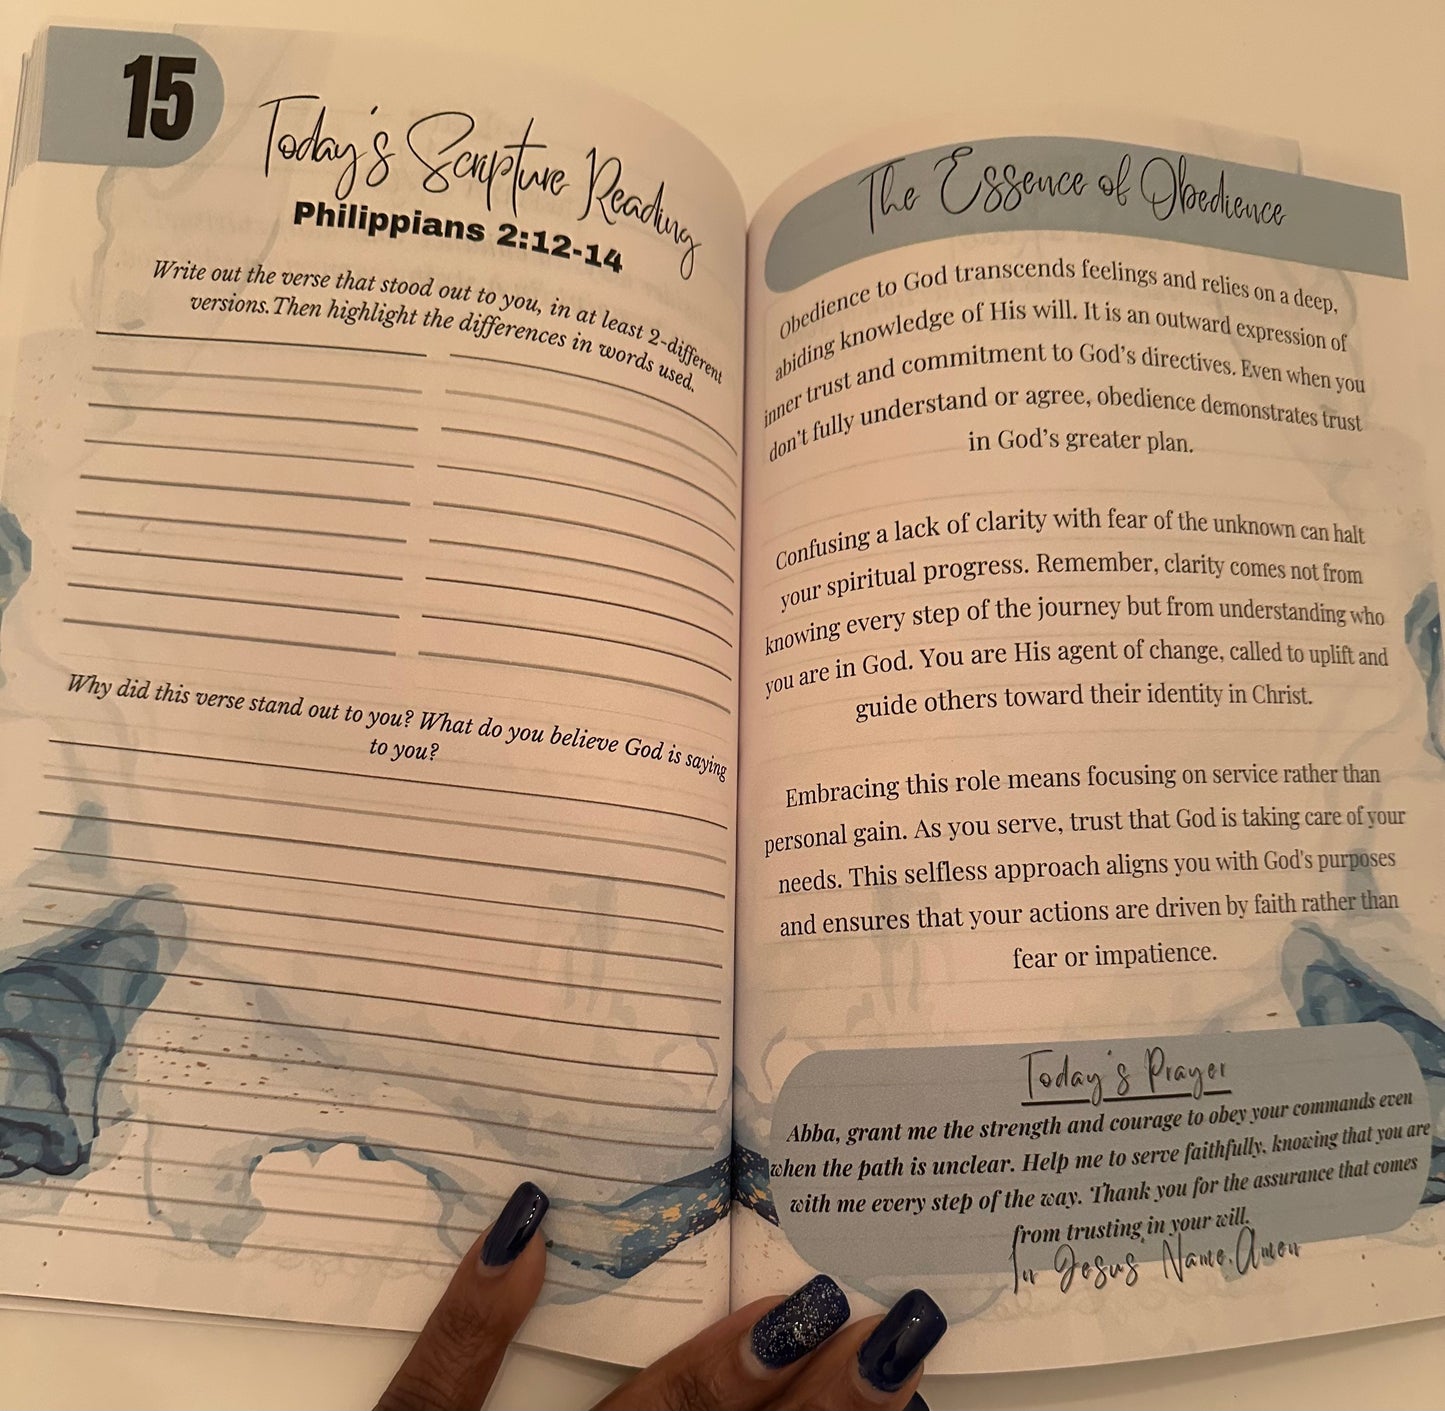 15
Today's Scripture Reading
Philippians 2:12-14
Write out the verse that stood out to you, in at least 2-different
versions.Then highlight the differences in words used.
Why did this verse stand out to you? What do you believe God is saying
to you?
The Essence of Obedience
Obedience to God transcends feelings and relies on a deep,
abiding knowledge of His will. It is an outward expression of
inner trust and commitment to God's directives. Even when you
don't fully understand or agree, obedience demonstrates trust
in God's greater plan.
Confusing a lack of clarity with fear of the unknown can halt
your spiritual progress. Remember, clarity comes not from
knowing every step of the journey but from understanding who
you are in God. You are His agent of change, called to uplift and
guide others toward their identity in Christ.
Embracing this role means focusing on service rather than
personal gain. As you serve, trust that God is taking care of your
needs. This selfless approach aligns you with God's purposes
and ensures that your actions are driven by faith rather than
fear or impatience.
Today's Prayer
Abba, grant me the strength and courage to obey your commands even
when the path is unclear. Help me to serve faithfully, knowing that you are
with me every step of the way. Thank you for the assurance that comes
from trusting in your will.
In Jesus' Name, Amen